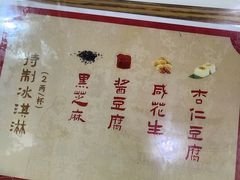 杏仁豆腐
咸花生
酱豆腐
黑芝麻
特制冰淇淋
(2两一杯)